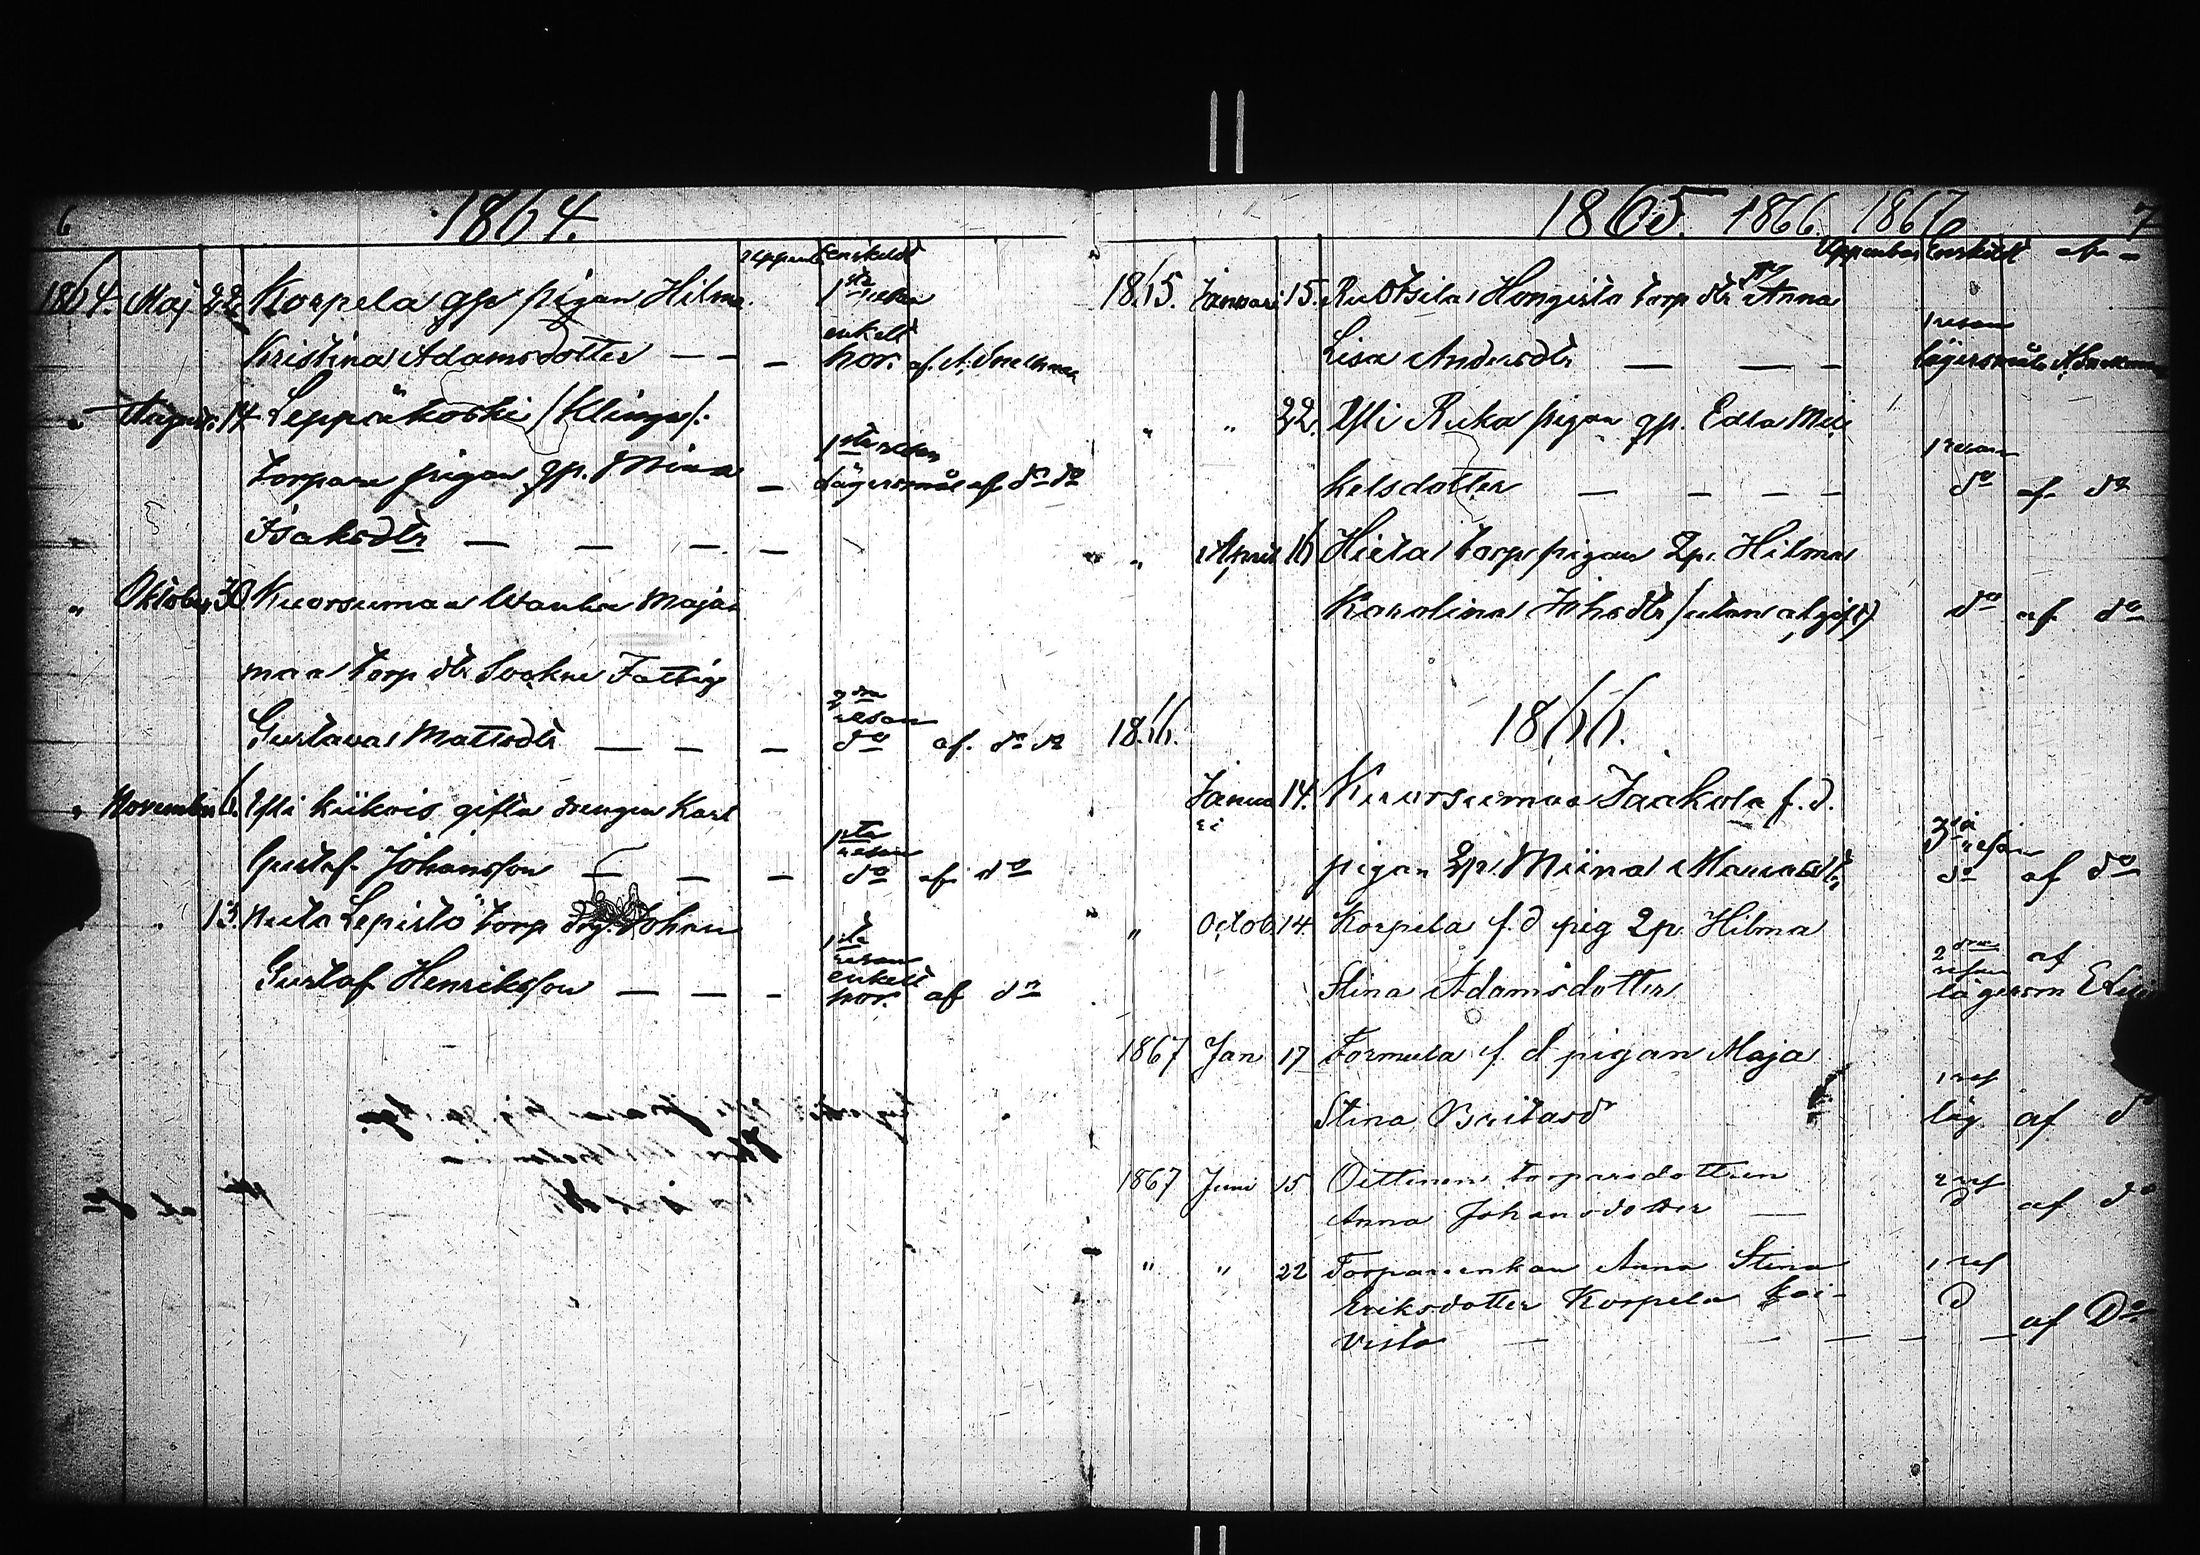 6
1864.
Uppenb. Enskeldt
1864. Maj 22. Korpela gfe pigan Hilma 1sta resan
Kristina Adamsdotter — — — enkelt hor. af A. Snellman
" August. 14 Leppäkoski /Klinga/.
torpare pigan qp. Mina — 1sta resan Lägersmål af do do
Isaksdtr — — — —
" Oktober 30. Kuorsumaa Maja
maa torp dtr Fattig
Gustava Mattsdtr — — — 2dra resan do af do do
" November 6. Yli kiikois gifta drengen Karl
Gustaf Johansson — — — 1sta resan do af do
" " 13. Lepistö torp drg. Johan
Gustaf Henriksson — — — 1sta resan enkelt hor. af do
1865. 1866 1867
7
Uppenbar Enskildt af
1865. Januari 15. Ruotsila Hongisto torp dtr Anna
Lisa Andersdtr — — — 1 resan lägersmål A. Snellman
" " 22. Yli Ruka pigan qp. Edla Mic
helsdotter — — — — 1 resan do af do
" April 16 Hieta torp pigan Qp. Hilma
Karolina Johsdtr /utan afgift/ do af do
1866. 1866.
Janua 14. Kuorsumaa Jaakola f.d.
ri
pigan Qp Miina 3dje resan do af do
" Octob. 14. Korpela f.d pig Qp. Hilma
Stina Adamsdotter 2dra resan lägersm af
1867 Jan 17 Formula f. d pigan Maja
Stina Britasd 1 res läg. af do
1867 Juni 15 Oittinen torparedottren 2 res
Anna Johansdotter — d af do
" " 22 Torpareenkan Anna Stina 1 res
Eriksdotter Korpela Koi- d
visto — — — — — af Do